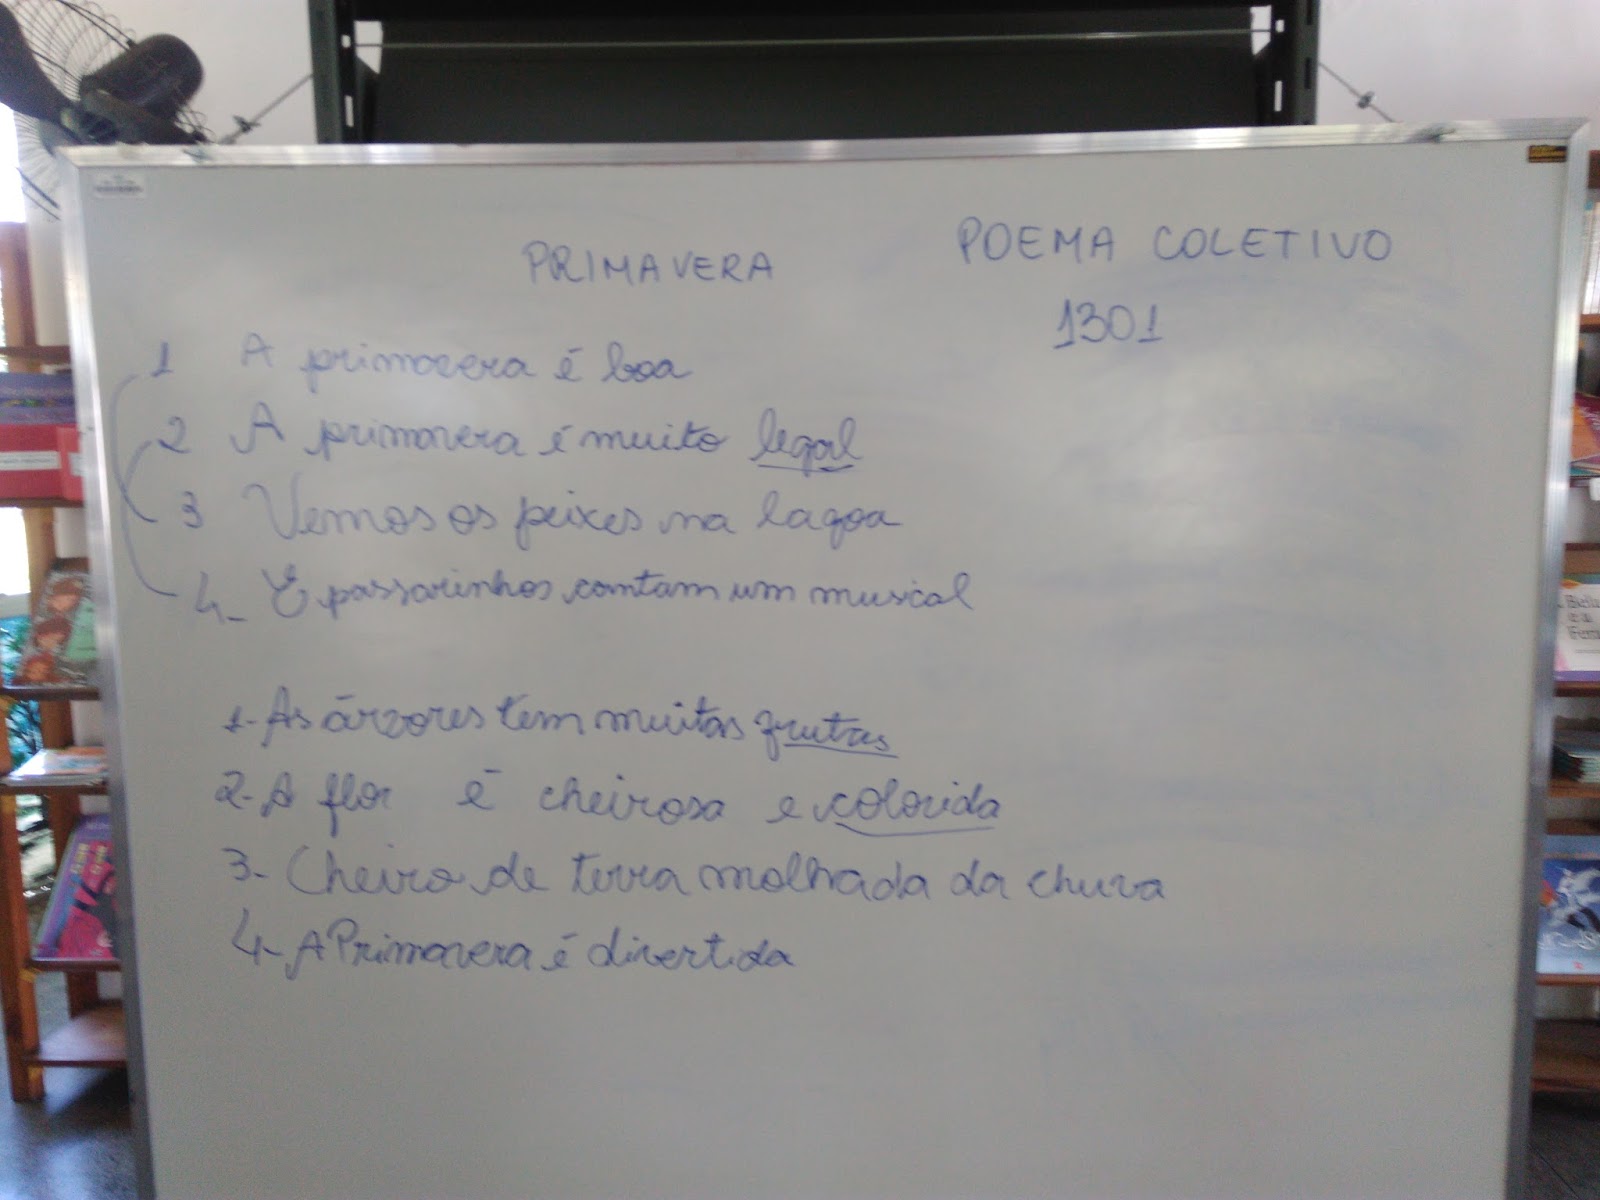 PRIMAVERA
POEMA COLETIVO
1301
1 A primavera é boa
2 A primavera é muito legal
3 Vemos os peixes na lagoa
4- E passarinhos cantam um musical
1- As árvores tem muitas frutas
2- A flor é cheirosa e colorida
3- Cheiro de terra molhada da chuva
4- A Primavera é divertida